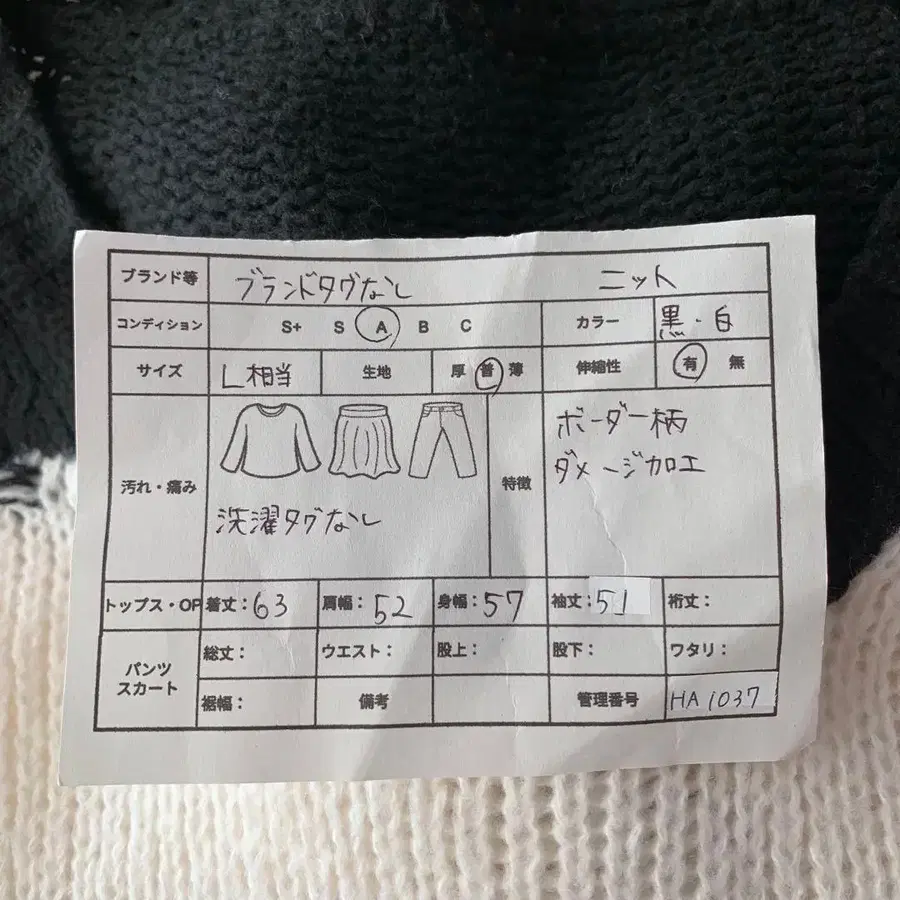 ブランド等 ブランドタグなし ニット
コンディション S+ S A B C カラー 黒・白
サイズ L相当 生地 厚 普 薄 伸縮性 有 無
汚れ・痛み 洗濯タグなし 特徴 ボーダー柄
ダメージ加工
トップス・OP 着丈:63 肩幅:52 身幅:57 袖丈:51 裄丈:
パンツ
スカート
総丈: ウエスト: 股上: 股下: ワタリ:
裾幅: 備考 管理番号 HA1037